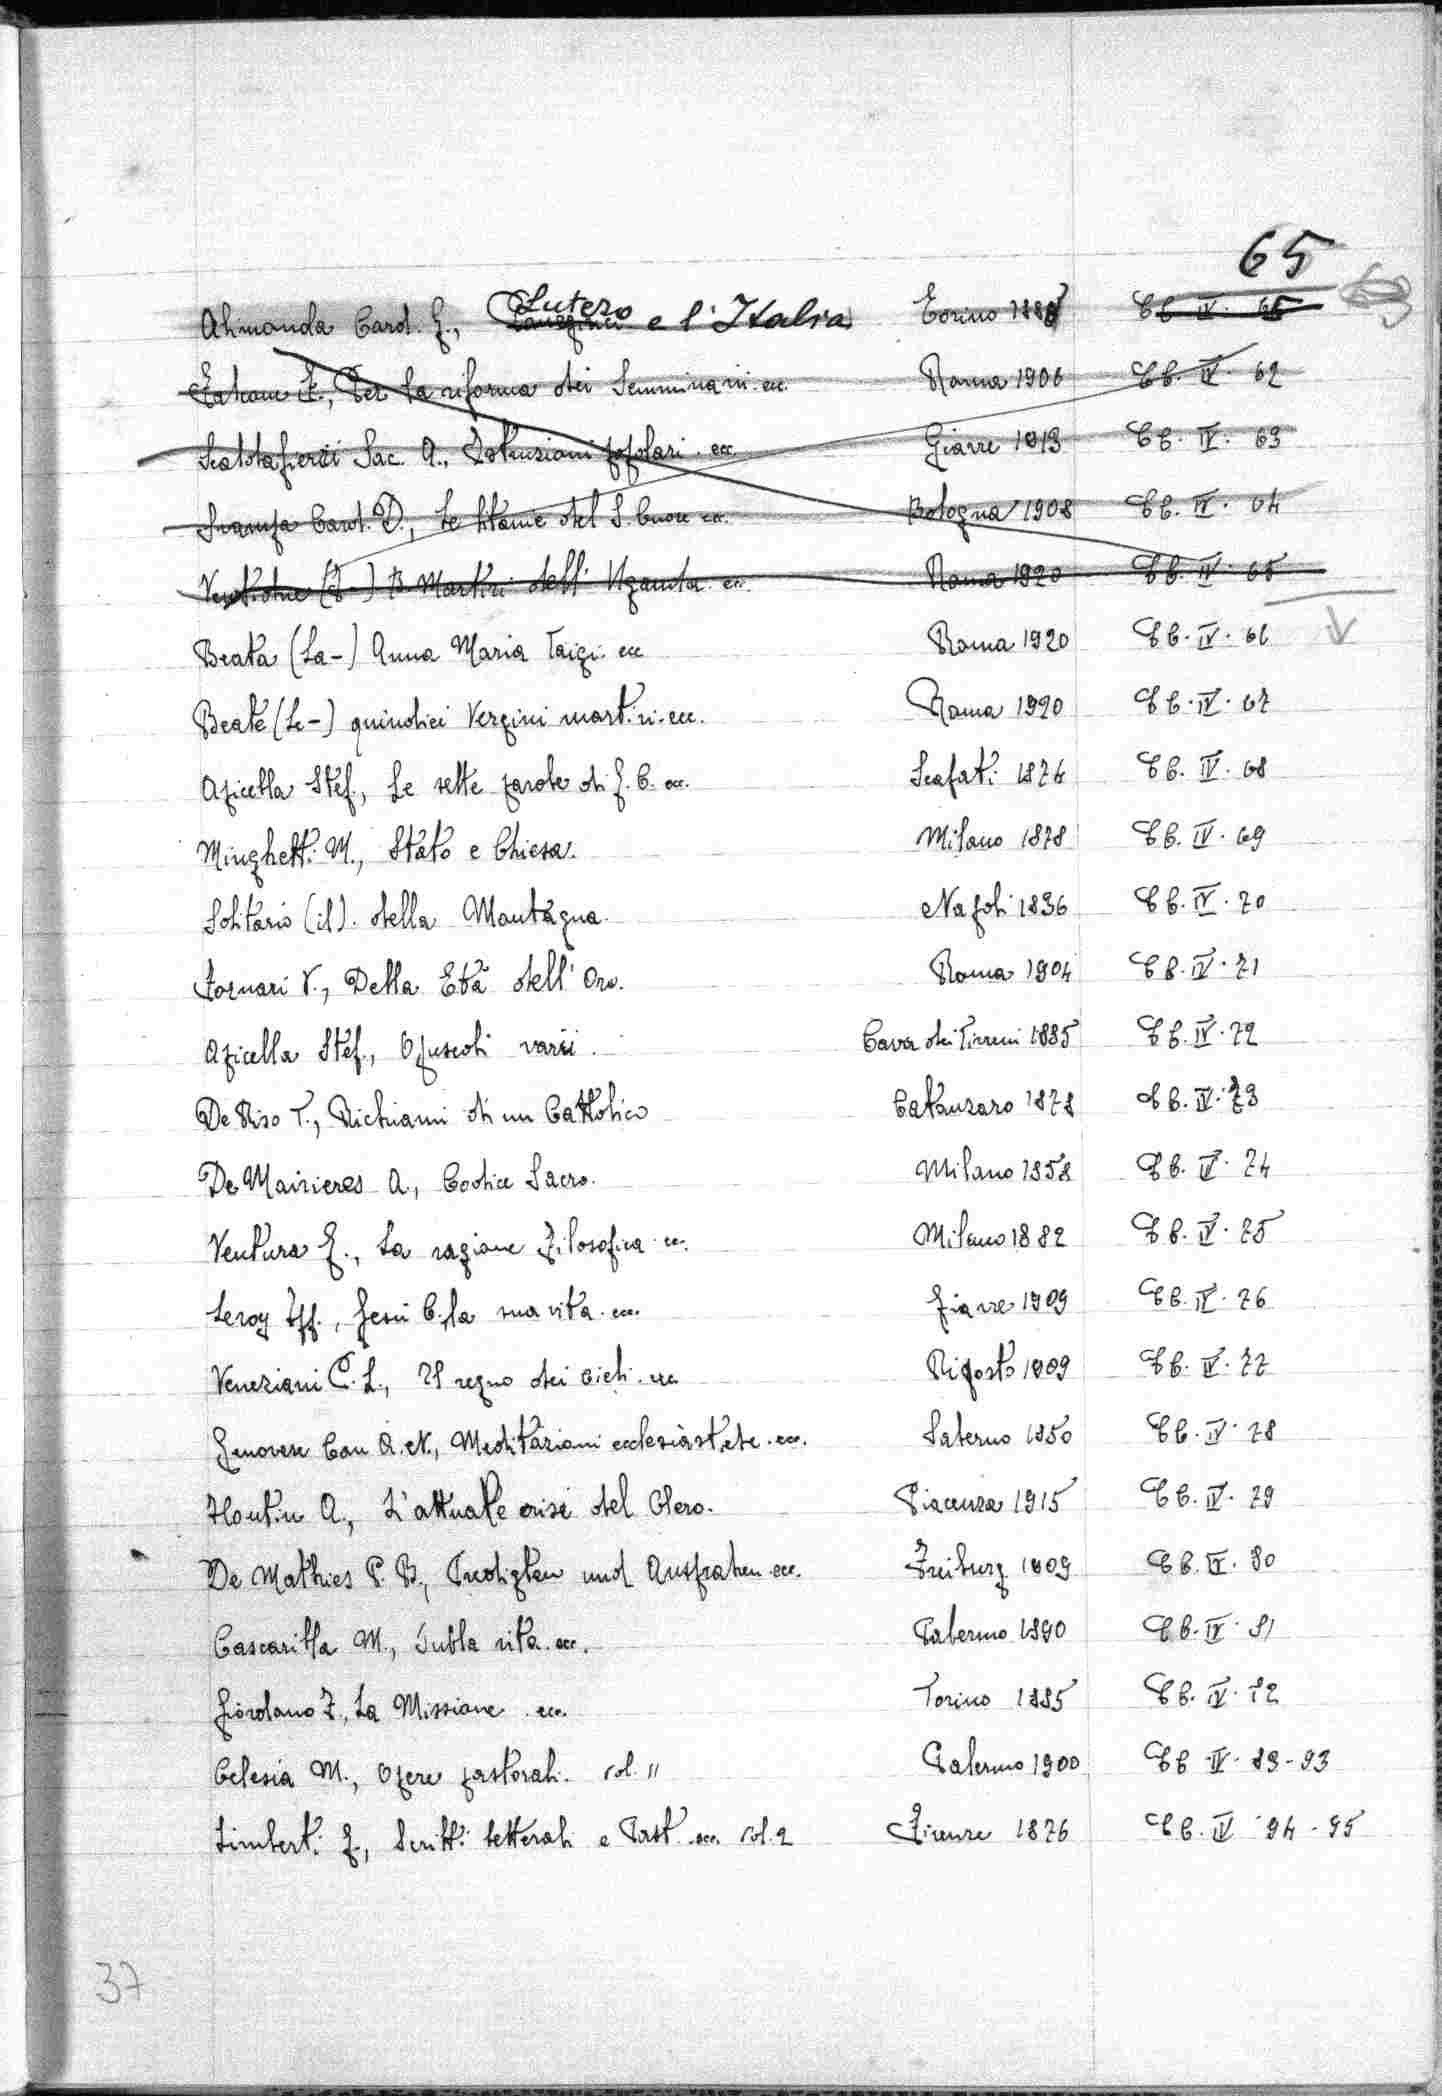 65
Alimonda Card. G., Lutero e l'Italia Torino 188 Cb. IV. 65
Falcone F., Per la riforma dei Semminarii. ecc. Roma 1906 Cb. IV. 62
Scalolafierii Sac. A., Istruzioni popolari. ecc. Giarre 1913 Cb. IV. 63
Svampa Card. D., Le litanie del S. Cuore ecc. Bologna 1908 Cb. IV. 64
B. Martiri dell' Uganda. ecc. Roma 1920 Cb. IV. 65
Beata (La-) Anna Maria Taigi. ecc Roma 1920 Cb. IV. 66
Beate (Le-) quindici Vergini martiri. ecc. Roma 1920 Cb. IV. 67
Apicella Stef., Le sette parole di G. C. ecc. Scafati 1874 Cb. IV. 68
Minghetti M., Stato e Chiesa. Milano 1878 Cb. IV. 69
Solitario (il). della Montagna. Napoli 1836 Cb. IV. 70
Fornari V., Della Età dell' Oro. Roma 1904 Cb. IV. 71
Apicella Stef., Opuscoli varii. Cava dei Tirreni 1885 Cb. IV. 72
De Riso T., Richiami di un Cattolico Catanzaro 1878 Cb. IV. 73
De Mairieres A., Codice Sacro. Milano 1858 Cb. IV. 74
Ventura G., La ragione Filosofica. ecc. Milano 1882 Cb. IV. 75
Leroy Ipp., Gesù C. la sua vita. ecc. Giarre 1909 Cb. IV. 76
Veneziani C. L., Il regno dei cieli. ecc Riposto 1909 Cb. IV. 77
Genovese Can A. N., Meditazioni ecclesiastiche. ecc. Salerno 1850 Cb. IV. 78
Houtin A., L'attuale crisi del Clero. Piacenza 1915 Cb. IV. 79
De Mathies P. B., Predigten und Ansprahen. ecc. Freiburg 1909 Cb. IV. 80
Cascarilla M., Sulla vita. ecc. Palermo 1890 Cb. IV. 81
Giordano F., La Missione. ecc. Torino 1885 Cb. IV. 82
Celesia M., Opere pastorali. vol. 11 Palermo 1900 Cb IV. 83-93
Limberti G., Scritti letterali e Past. ecc. vol. 2 Firenze 1876 Cb. IV 94-95
37